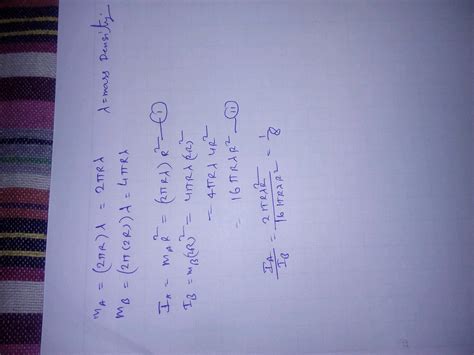 m_A = (2πR) λ = 2πRλ    λ = mass Density
m_B = (2π(2R)) λ = 4πRλ
I_A = m_A R² = (2πRλ) R² — (i)
I_B = m_B (2R)² = 4πRλ (2R)²
= 4πRλ 4R²
= 16πRλR² — (ii)
I_A / I_B = 2πRλR² / 16πRλR² = 1/8